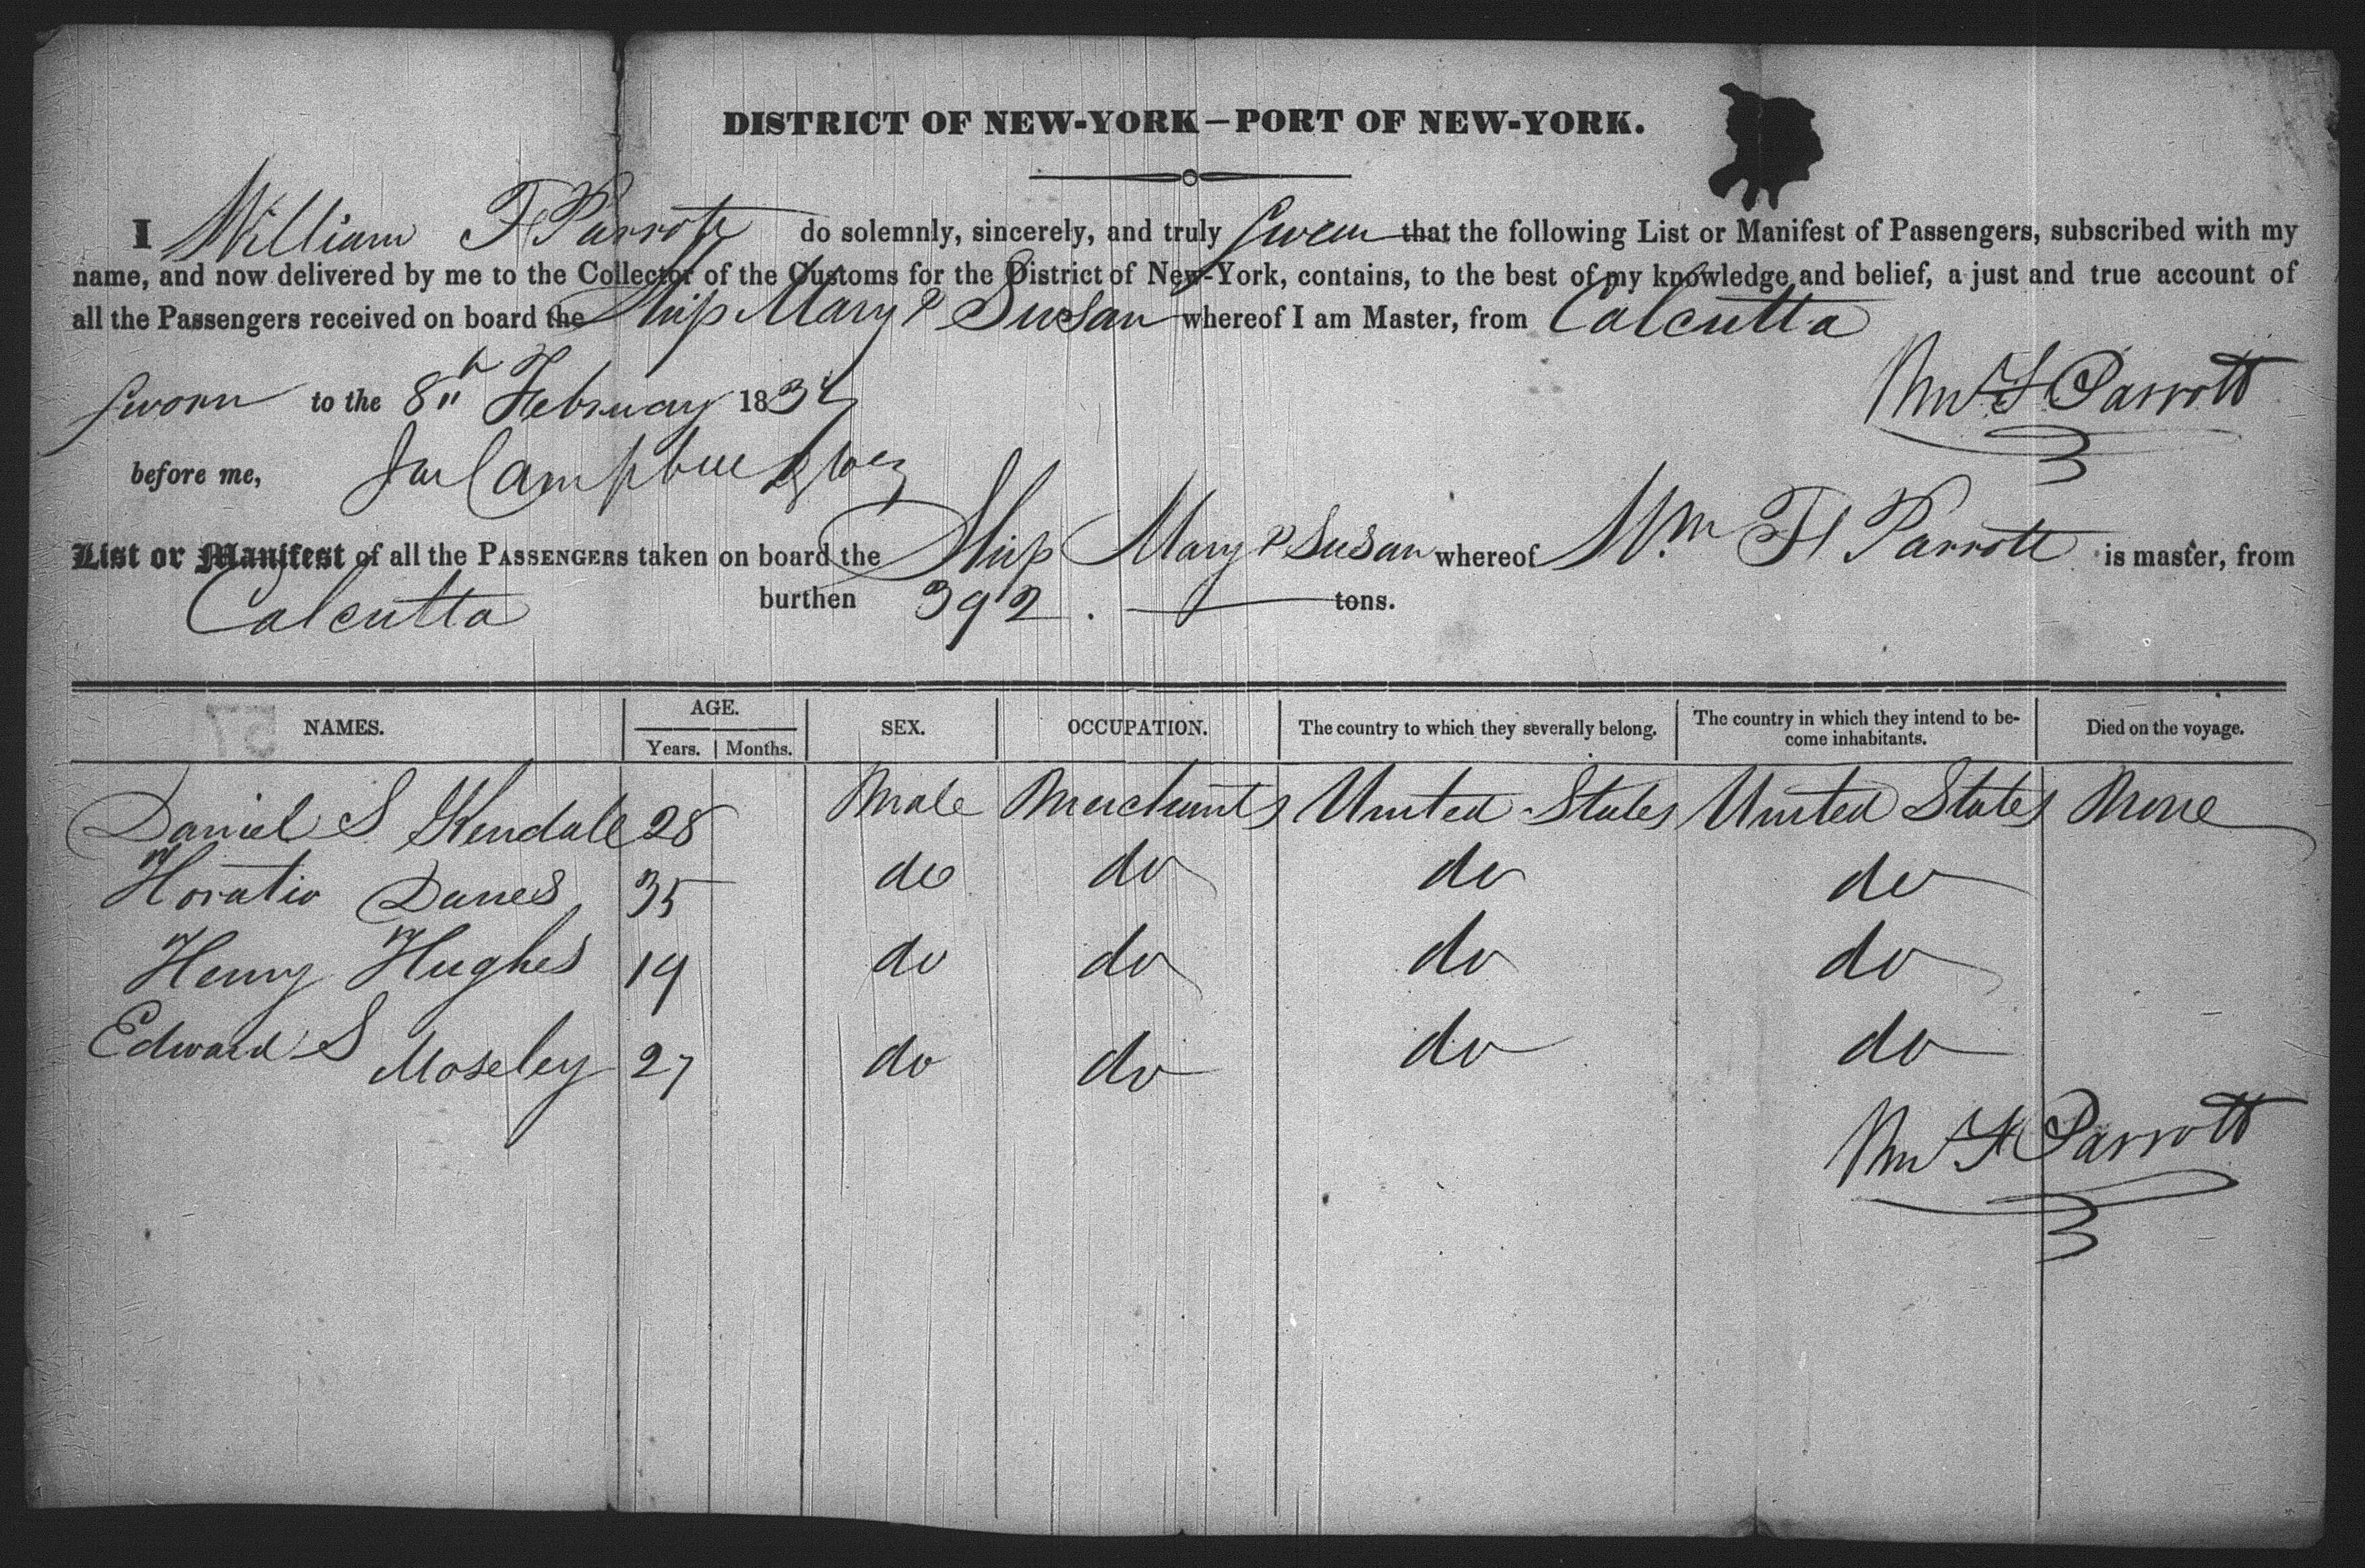 DISTRICT OF NEW-YORK—PORT OF NEW-YORK.
I William F Parrott do solemnly, sincerely, and truly Swear that the following List or Manifest of Passengers, subscribed with my
name, and now delivered by me to the Collector of the Customs for the District of New-York, contains, to the best of my knowledge and belief, a just and true account of
all the Passengers received on board the Ship Mary & Susan whereof I am Master, from Calcutta
Sworn to the 8th February 1834
Wm F Parrott
before me, Campbell
List or Manifest of all the PASSENGERS taken on board the Ship Mary & Susan whereof Wm F Parrott is master, from
Calcutta burthen 392. tons.
NAMES. AGE. Years. Months. SEX. OCCUPATION. The country to which they severally belong. The country in which they intend to be-
come inhabitants. Died on the voyage.
57
Daniel S Kendall 28 Male Merchants United States United States None
Horatio 35 do do do do
Henry Hughes 19 do do do do
Edward S Moseley 27 do do do do
Wm F Parrott